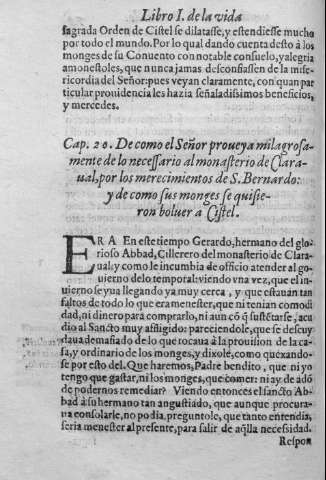 Libro I. de la vida
sagrada Orden de Cistel se dilatasse, y estendiesse mucho
por todo el mundo. Por lo qual dando cuenta desto à los
monges de su Conuento con notable consuelo, y alegria
amonestoles, que nunca jamas desconfiassen de la mise-
ricordia del Señor: pues veyan claramente, con quan par
ticular prouidencia les hazia señaladissimos beneficios,
y mercedes.
Cap. 20. De como el Señor proueya milagrosa-
mente de lo necessario al monasterio de Clara-
ual, por los merecimientos de S. Bernardo:
y de como sus monges se quisie-
ron boluer a Cistel.
ERA En este tiempo Gerardo, hermano del glo-
rioso Abbad, Cillerero del monasterio de Clara-
ual: y como le incumbia de officio atender al go-
uierno delo temporal: viendo vna vez, que el in-
uierno se yua llegando ya muy cerca, y que estauan tan
faltos de todo lo que era menester, que ni tenian comodi
dad, ni dinero para comprarlo, ni aun cõ q̃ sustẽtarse, acu
dio al Sancto muy afligido: pareciendole, que se descuy
daua demasiado de lo que tocaua à la prouision de la ca-
sa, y ordinario de los monges, y dixole, como quexando-
se por esto del. Que haremos, Padre bendito, que ni yo
tengo que gastar, ni los monges, que comer: ni ay de adõ
de podernos remediar? Viendo entonces el sancto Ab-
bad à su hermano tan angustiado, que aunque procura-
ua consolarle, no podia, preguntole, que tanto entendia,
seria menester al presente, para salir de aq̃lla necessidad.
Respon